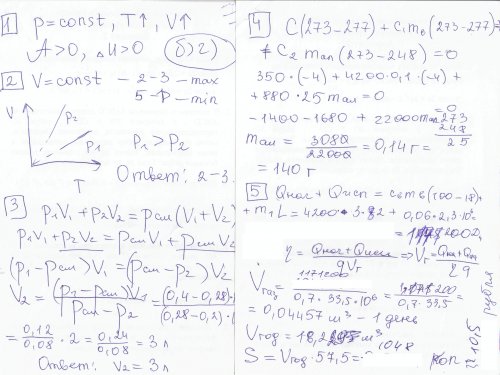 1 p = const, T↑, V↑
A > 0, Δu > 0 б) 2)
2 V = const – 2-3 – max
5-1 – min
V
p₂
p₁
p₁ > p₂
T
Ответ: 2-3.
3 p₁V₁ + p₂V₂ = pсм(V₁ + V₂)
p₁V₁ + p₂V₂ = pсмV₁ + pсмV₂
(p₁ - pсм)V₁ = (pсм - p₂)V₂
V₂ = (p₁ - pсм)V₁ / pсм - p₂ = (0,4 - 0,28) / (0,28 - 0,2)
= 0,12 / 0,08 · 2 = 0,24 / 0,08 = 3 л
Ответ: V₂ = 3 л
4 C(273-277) + c₁mв(273-277) +
+ C₂ mал(273-248) = 0
350·(-4) + 4200·0,1·(-4) +
+ 880·25 mал = 0
-1400 - 1680 + 22000mал = 0
273
248
25
mал = 3080 / 22000 = 0,14 г =
= 140 г
5 Qнаг + Qисп = cвmв(100-18) +
+ m₁L = 4200·3·82 + 0,06·2,3·10⁶
η = Qнаг + Qисп / qVг ⇒ Vг = Qнаг + Qисп / η q
Vгаз = 1171200 / 0,7 · 33,5·10⁶ = / 0,7·33,5 =
= 0,04457 м³ – 1 день
Vгод = м³
S = Vгод · 57,5 = 1048
рубля
коп